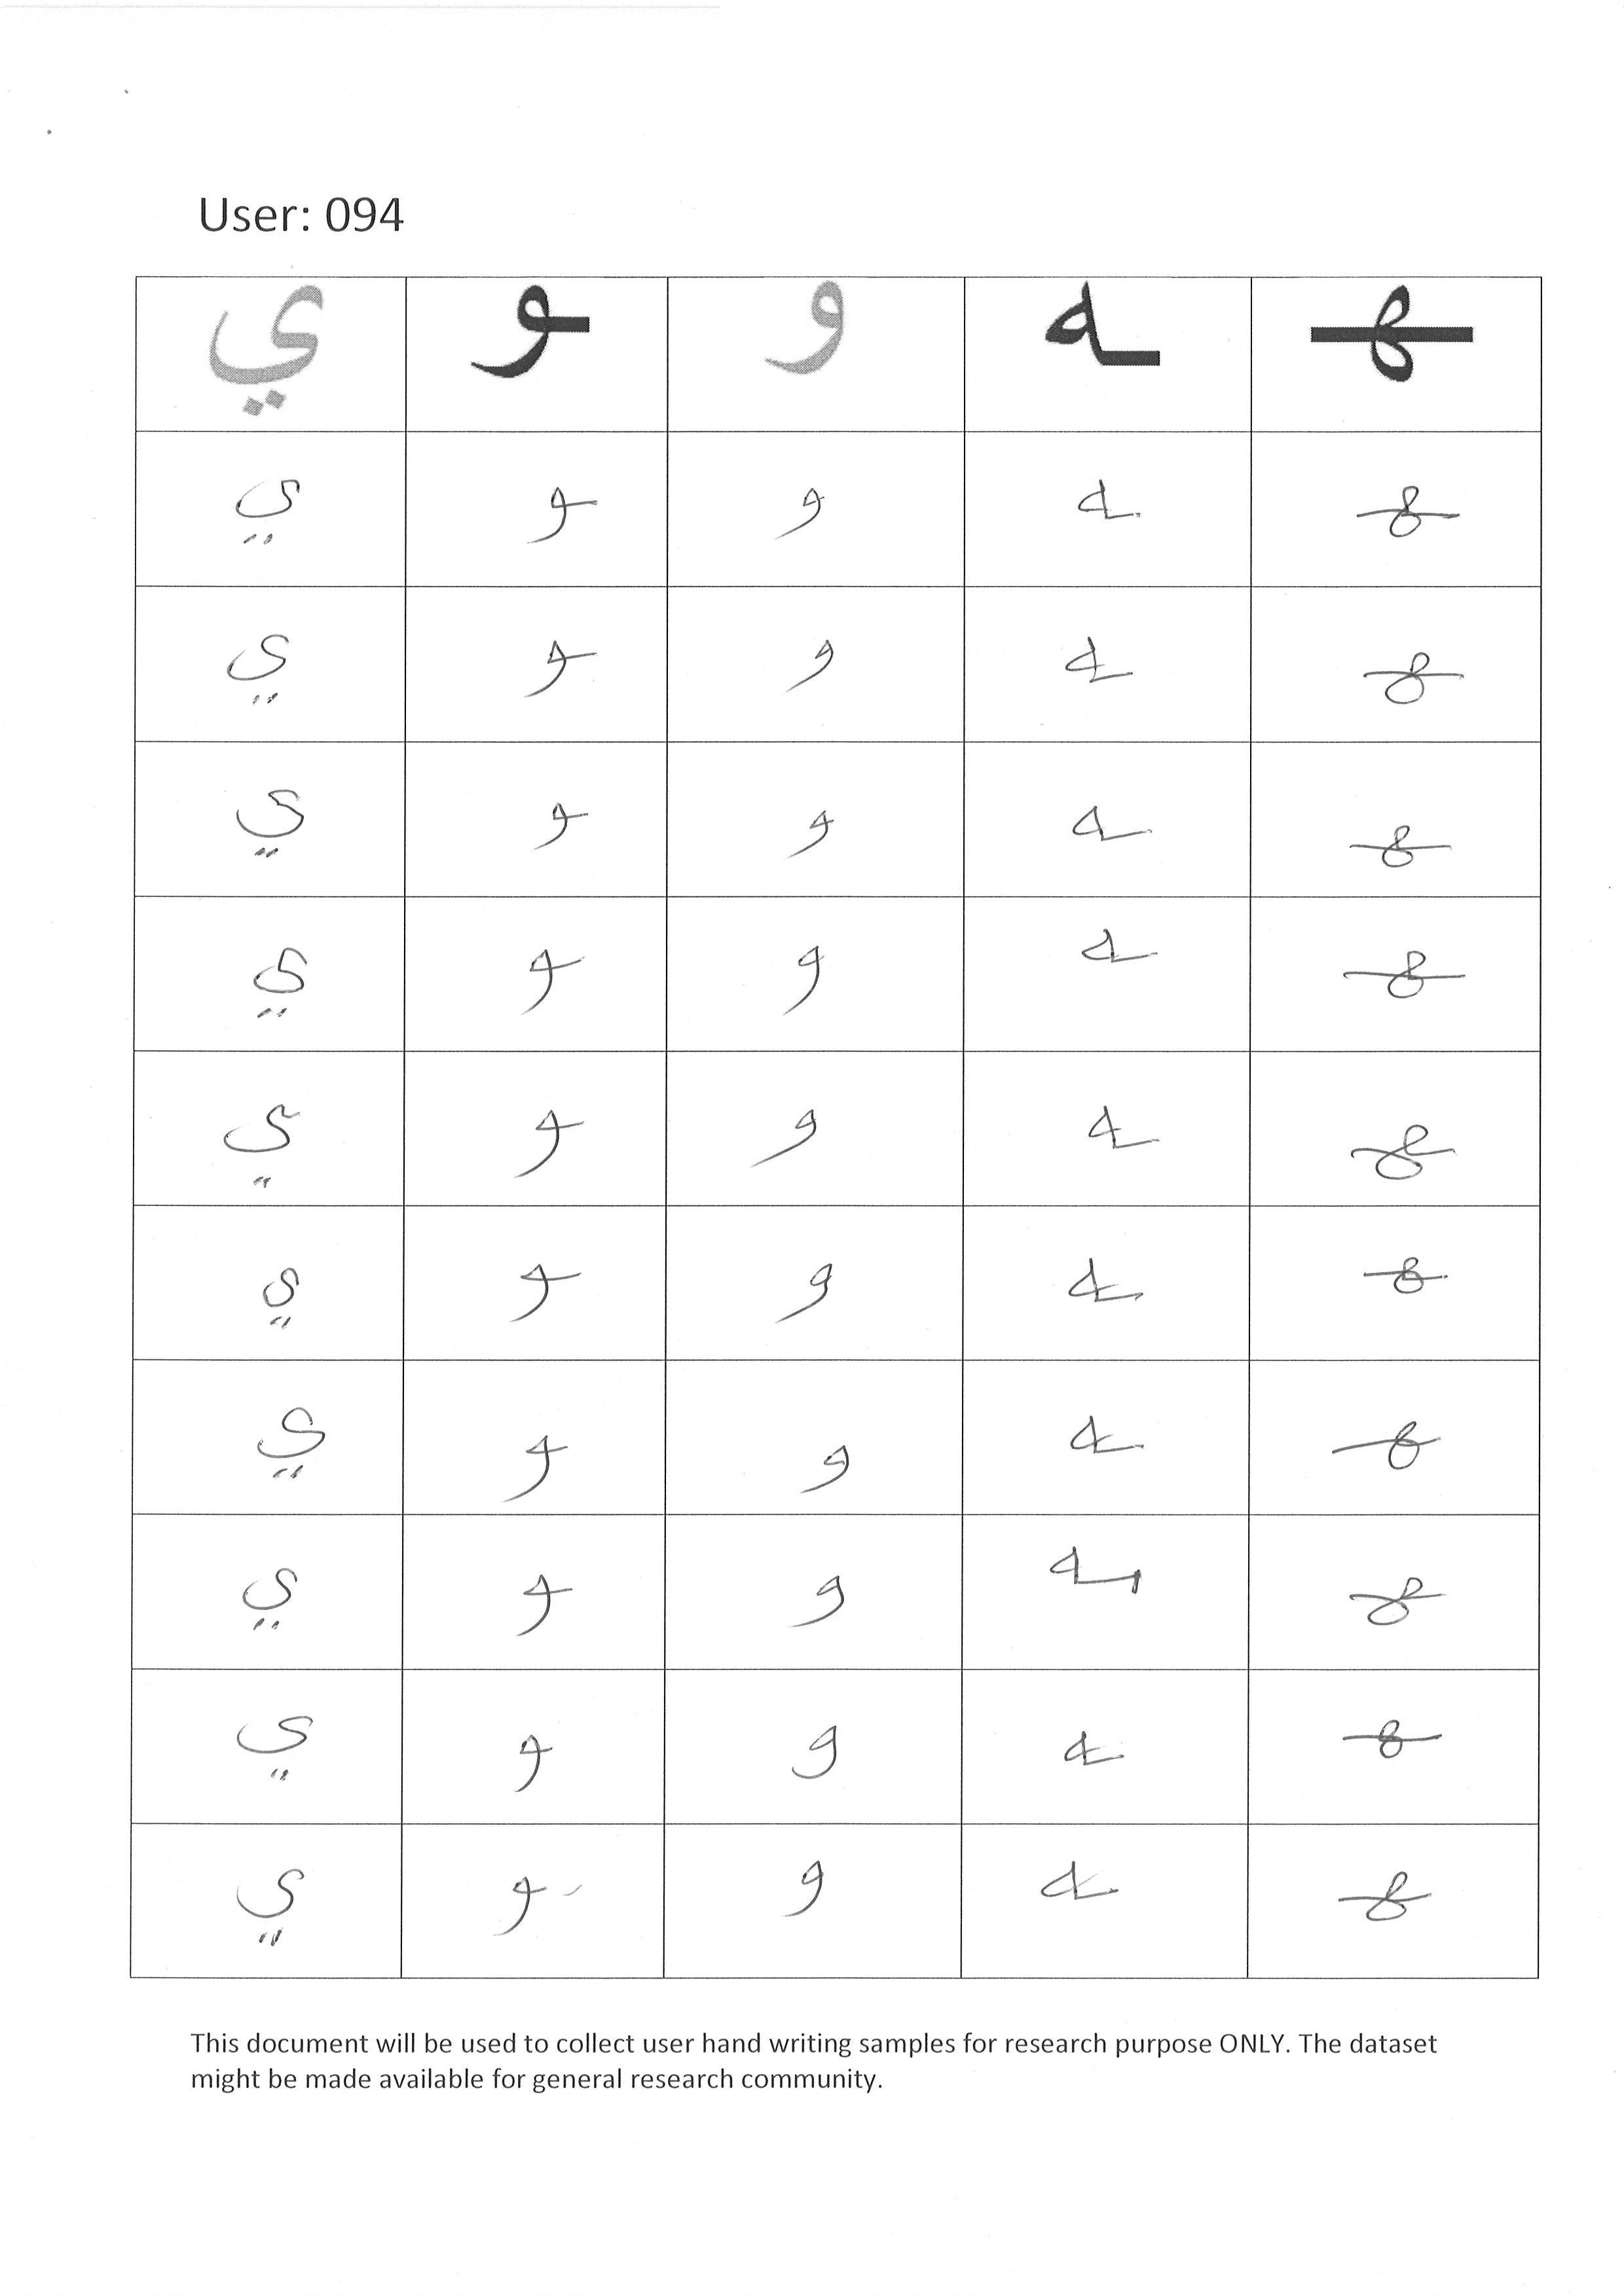 User: 094
ي ـو و ـه ـهـ
ي ـو و ـه ـهـ
ي ـو و ـه ـهـ
ي ـو و ـه ـهـ
ي ـو و ـه ـهـ
ي ـو و ـه ـهـ
ي ـو و ـه ـهـ
ي ـو و ـه ـهـ
ي ـو و ـه ـهـ
ي ـو و ـه ـهـ
ي ـو و ـه ـهـ
This document will be used to collect user hand writing samples for research purpose ONLY. The dataset
might be made available for general research community.